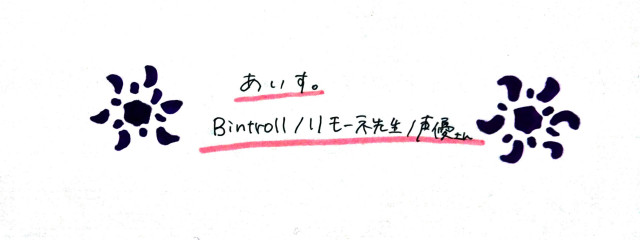 あいす。
Bintroll/リモーネ先生/声優さん